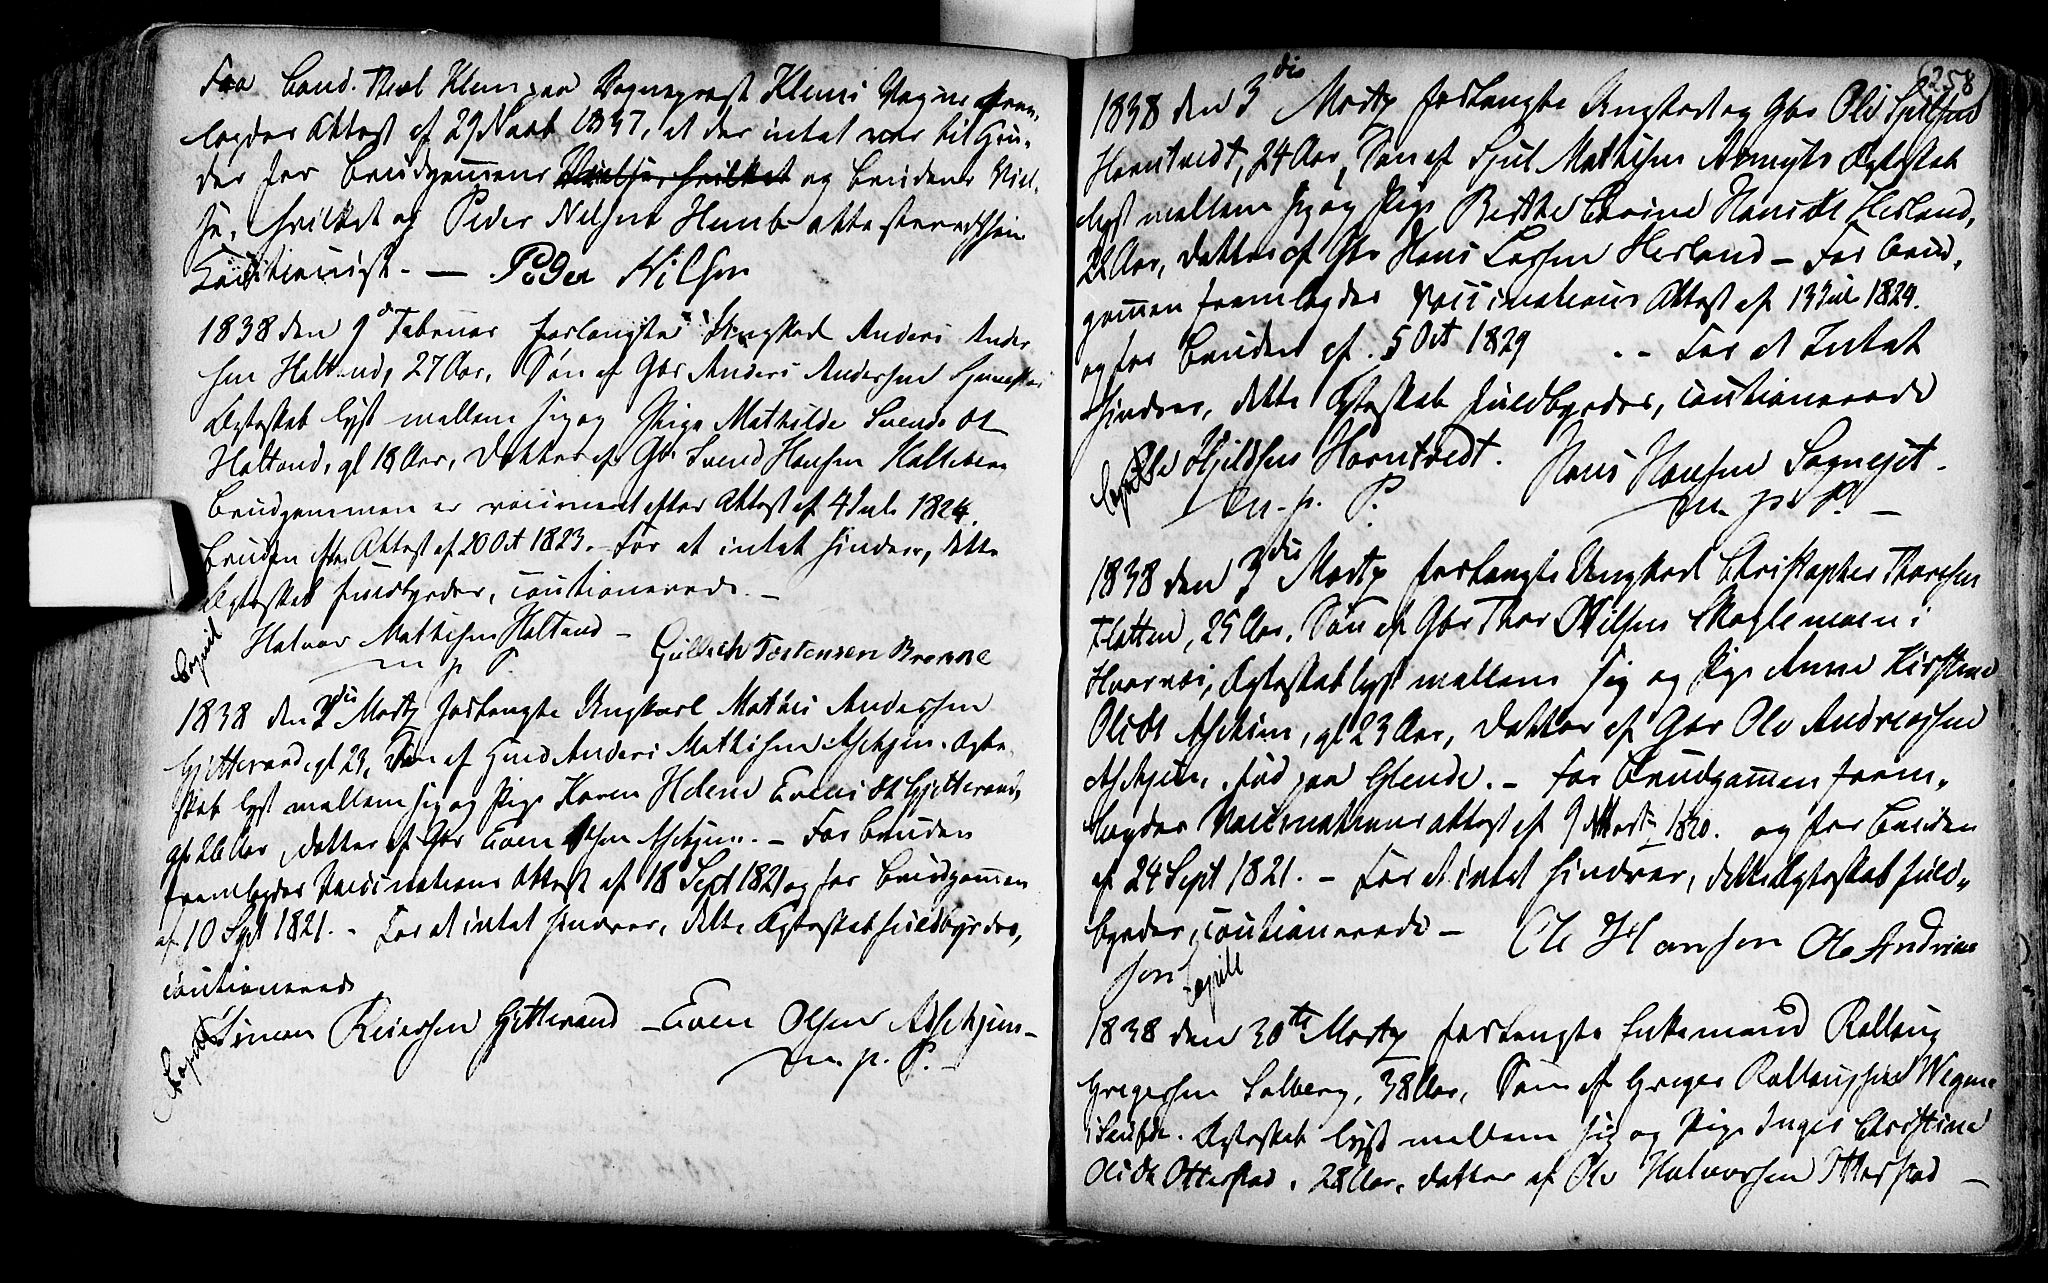 Fra Cand. Theol Klem paa Sogneprest Klems Vegne frem-
lagdes Attest af 29 1837, at der intet var til Hin-
der for Brudgommens og Brudens Viel-
se, hvilket og Peder Nilsen attesterede som
Cautionist. — Peder Nilsen
1838 den 9 Februar forlangte Ungkarl Anders Ander
sen Haltand, 27 Aar, Søn af Gbr Anders Andersen
Ægteskab lyst mellem sig og Pige Mathilde Svends Dt
Haltand, gl 18 Aar, Datter af Gbr Svend Hansen Kalleberg
Brudgommen er vaccineret efter Attest af 4 Jul. 1824.
Bruden efter Attest af 20 Oct 1823. - For at intet hindrer, dette
Ægteskab fuldbyrdes, cautionerede. —
Halvor Mathisen Haltand — Gullich Torstensen Brønne
Copul. m. p. P.
1838 den 3die Martz forlangte Ungkarl Mathis Andersen
Gjitterød, gl 23, Søn af Anders Mathisen Askjem. Ægte-
skab lyst mellem sig og Pige Karen Helene Evens Dt Gjitterød,
gl 26 Aar, Datter af Gbr Even Olsen Askjem. — For Bruden
fremlagdes Vaccinations Attest af 18 Sept 1821 og for Brudgommen
af 10 Sept 1821. - For at intet hindrer, dette Ægteskab fuldbyrdes,
cautionerede
Copul. Simon Reiersen Gjitterød — Even Olsen Askhjem —
m. p. P. —
258
1838 den 3die Martz forlangte Ungkarl og Gbr Ole Kjeldsen
Horntvedt, 24 Aar, Søn af Mathisen Ægteskab
lyst mellem sig og Pige Berthe Hans Dt Hesland,
22 Aar, Datter af Gbr Hans Larsen Hesland — For Brud-
gommen fremlagdes Vaccinations Attest af 13 Jul. 1829.
og for Bruden af 5 Oct 1829 .. For at Intet
hindrer, dette Ægteskab fuldbyrdes, cautionerede
Copul. Ole Kjeldsen Horntvedt. Hans Hansen
m. p. P. m. p. P. —
1838 den 3die Martz forlangte Ungkarl Christopher Thorsen
Flatten, 25 Aar, Søn af Gbr Thor Nilsen Skoglemoen i
Hvarnes, Ægteskab lyst mellem sig og Pige Anne Kirstine
Ols Dt Askjem, gl 23 Aar, Datter af Gbr Ole Andreasen
Askjem, fød paa Glende. — For Brudgommen frem-
lagdes Vaccinations attest af 9 Martz 1820. og for Bruden
af 24 Sept 1821. - For at intet hindrer, dette Ægteskab fuld-
byrdes, cautionerede — Ole Hansen Ole Andrias
sen Copul.
1838 den 30te Martz forlangte Enkemand Rollaug
Gregersen Solberg, 38 Aar, Søn af Greger Rollaugsen Wegne
i Ægteskab lyst mellem sig og Pige Inger Christine
Ols Dt Otterstad, 28 Aar, Datter af Ole Halvorsen Otterstad —